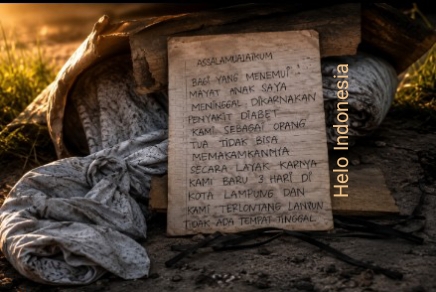 ASSALAMUALAIKUM
BAGI YANG MENEMUI
MAYAT ANAK SAYA
MENINGGAL DIKARNAKAN
PENYAKIT DIABET
KAMI SEBAGAI ORANG
TUA TIDAK BISA
MEMAKAMKANNYA
SECARA LAYAK KARNYA
KAMI BARU 3 HARI DI
KOTA LAMPUNG DAN
KAMI TERLONTANG LANTUN
TIDAK ADA TEMPAT TINGGAL
Helo Indonesia